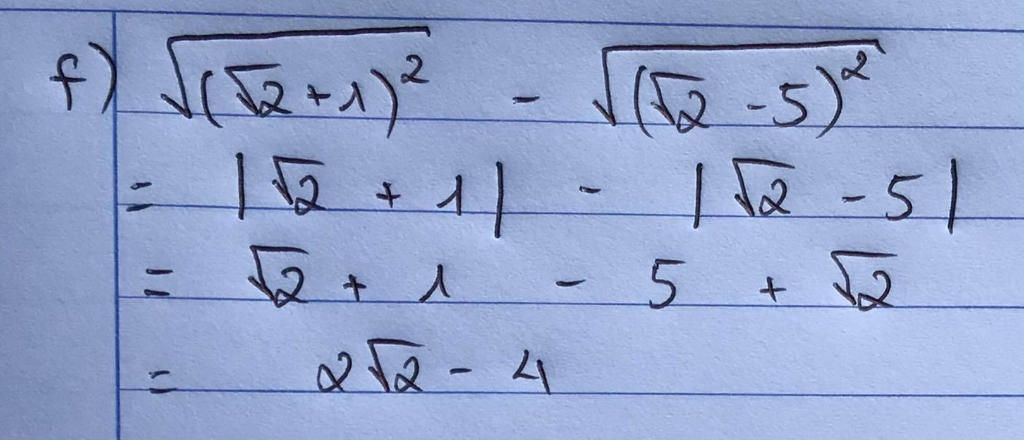 f) √(√2 + 1)² - √(√2 - 5)²
= |√2 + 1| - |√2 - 5|
= √2 + 1 - 5 + √2
= 2√2 - 4